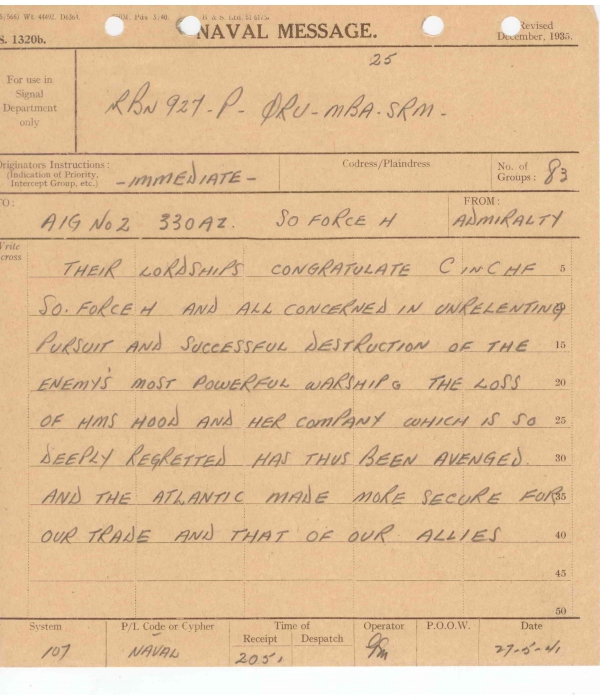 S. 1320b.
NAVAL MESSAGE.
Revised
December, 1935.
For use in
Signal
Department
only
25
RBN 927 - P - QRU - MBA - SRM -
Originators Instructions:
(Indication of Priority,
Intercept Group, etc.)
- IMMEDIATE -
Codress/Plaindress
No. of
Groups: 83
TO:
FROM:
AIG No 2 330AZ. SO FORCE H ADMIRALTY
Write
across
THEIR LORDSHIPS CONGRATULATE C IN C HF 5
SO. FORCE H AND ALL CONCERNED IN UNRELENTING
PURSUIT AND SUCCESSFUL DESTRUCTION OF THE 15
ENEMY'S MOST POWERFUL WARSHIP. THE LOSS 20
OF HMS HOOD AND HER COMPANY WHICH IS SO 25
DEEPLY REGRETTED HAS THUS BEEN AVENGED. 30
AND THE ATLANTIC MADE MORE SECURE FOR 35
OUR TRADE AND THAT OF OUR ALLIES 40
45
50
System P/L Code or Cypher Time of Operator P.O.O.W. Date
Receipt Despatch
107 NAVAL 2051 27-5-41